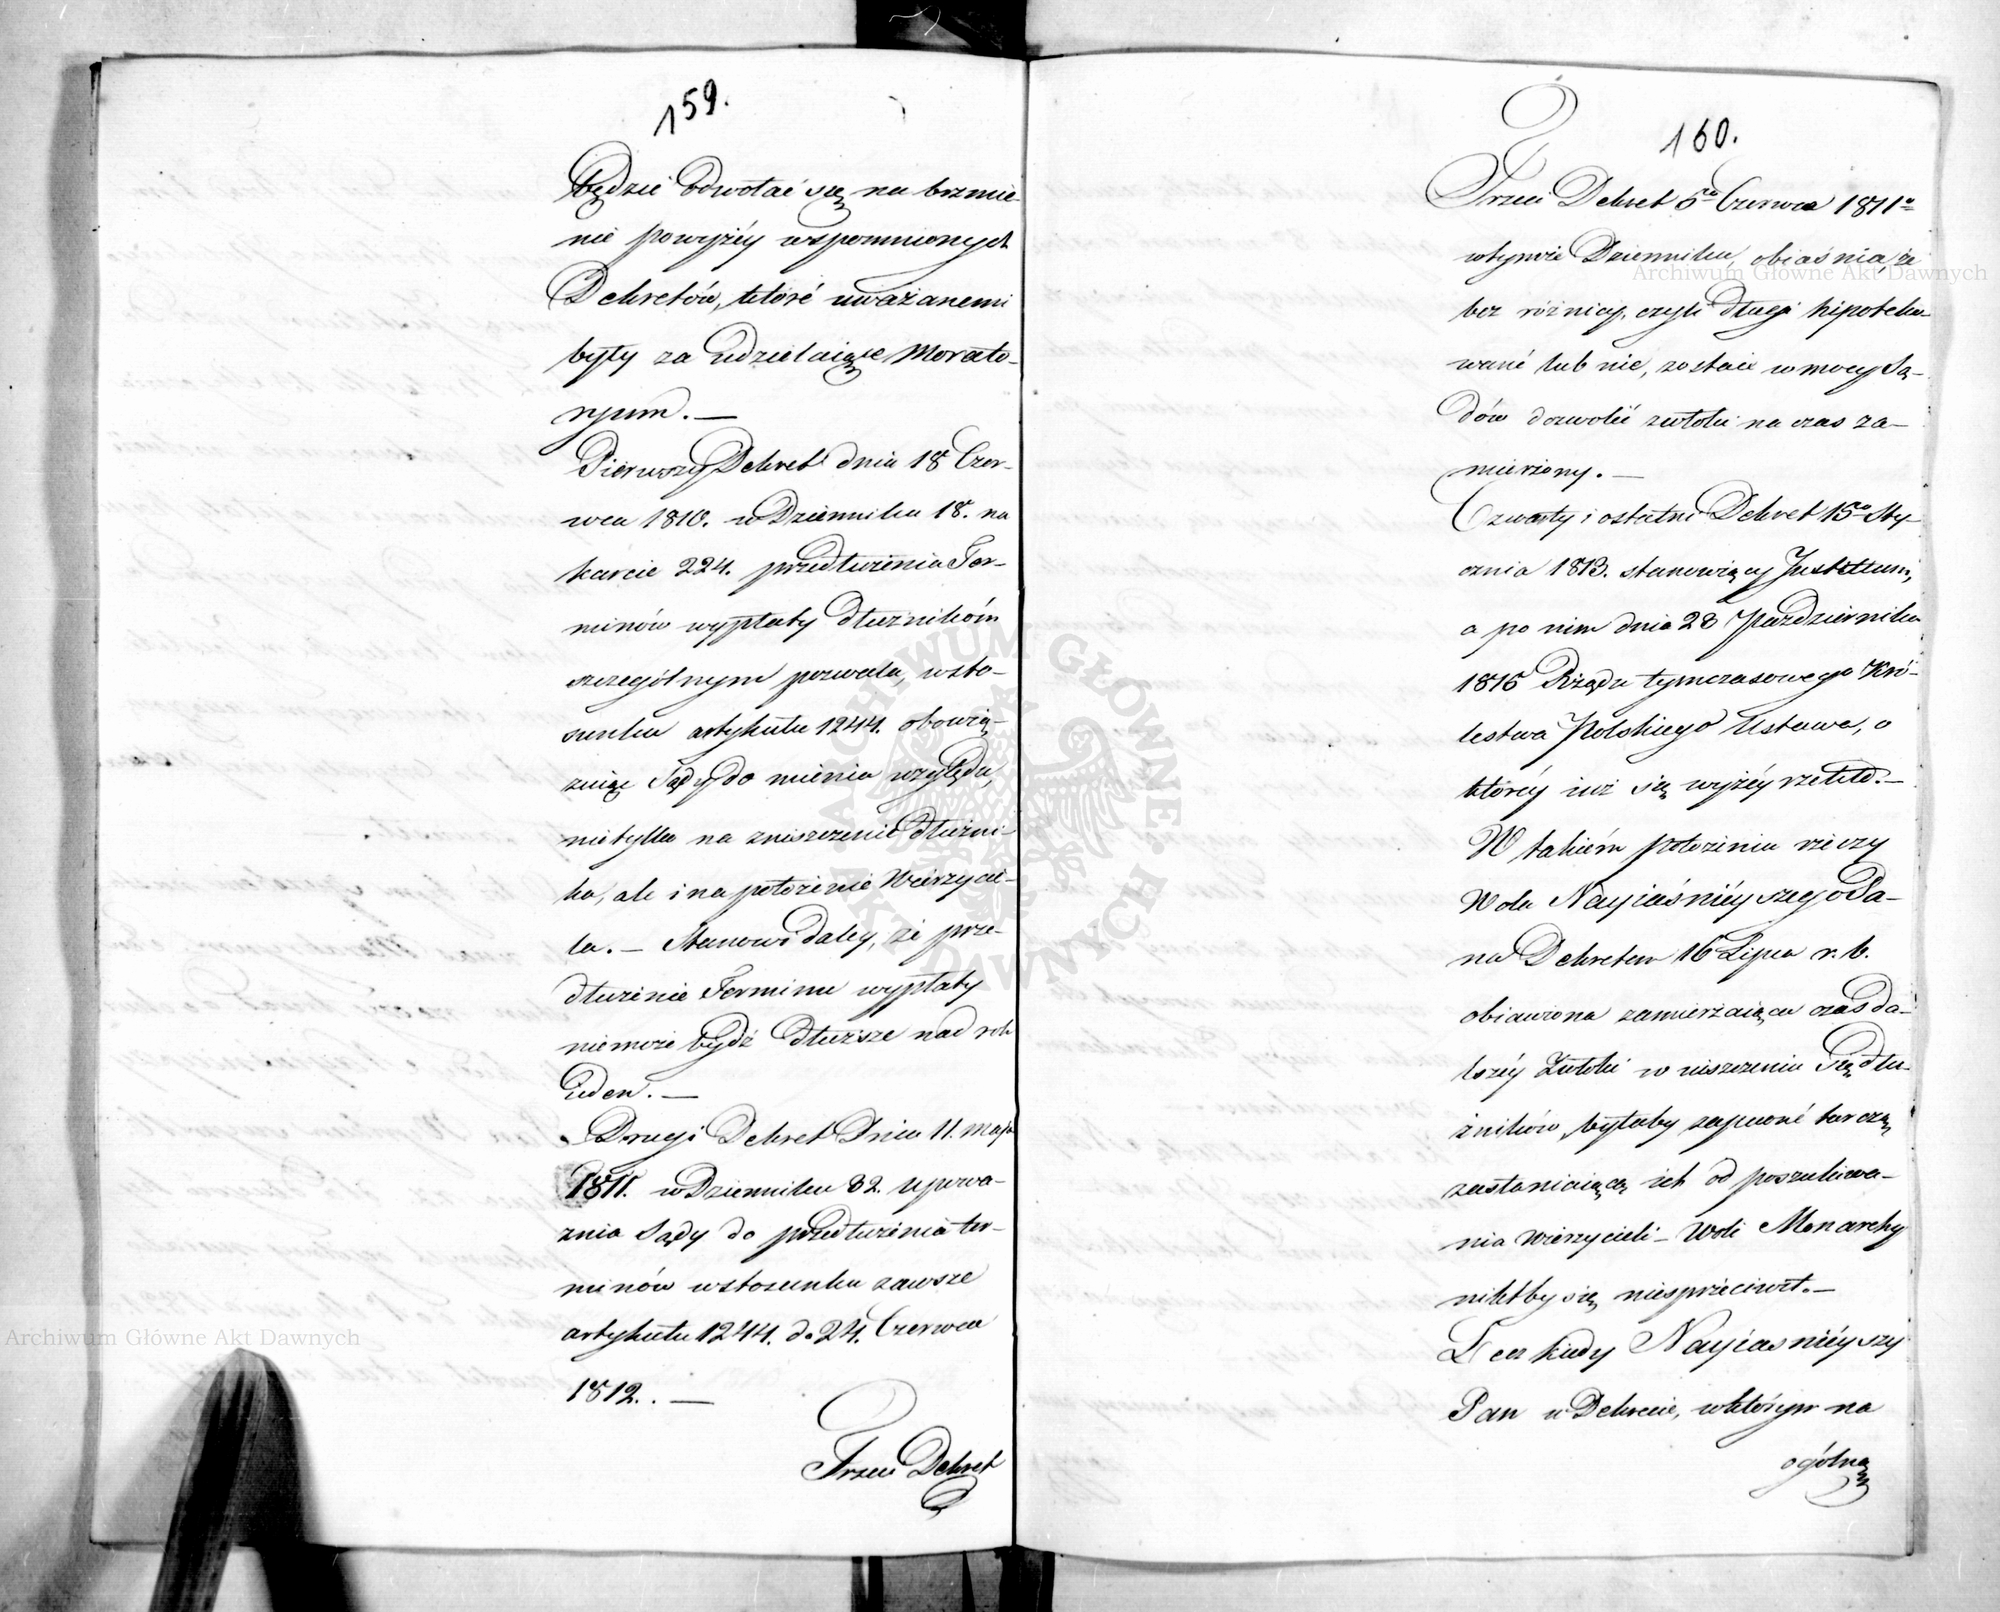 159.
będzie odwołać się na brzmie-
nie powyżéy wspomnionych
Dekretów, które uważanemi
były za udzielaiące Morato-
ryum. —
Pierwszy Dekret dnia 18 Czer-
wca 1810. w Dzienniku 18. na
karcie 224. przedłużenia Ter-
minów wypłaty dłużnikóm
szczególnym pozwala, wsto-
sunku artykułu 1244. obowią-
zuiąc Sądy do mienia względu,
nietylko na zniszczenie dłużni-
ka, ale i na położenie Wierzycie-
la. — Stanowi daley, że prze-
dłużenie Terminu wypłaty
niemoże bydź dłuższe nad rok
ieden. —
Drugi Dekret Dnia 11. Maja
1811. w Dzienniku 32. upowa-
żnia Sądy do przedłużenia ter-
minów wstosunku zawsze
artykułu 1244. do 24. Czerwca
1812. . —
Trzeci Dekret
160.
Trzeci Dekret 5go Czerwca 1811o
wtymże Dzienniku, obiaśnia, że
bez różnicy, czyli długi hipoteko-
wané lub nie, zostaie w mocy Są-
dów dozwolić zwłoki na czas za-
mierzony. —
Czwarty i ostatni Dekret 15o Sty-
cznia 1813. stanowiący Justitium,
a po nim dnia 28 Października
1815 Rządu tymczasowego Kró-
lestwa Polskiego Ustawa, o
któréy iuż się wyżéy rzekło. —
W takiém położeniu rzeczy
Wola Nayiaśniéyszego Pa-
na Dekretem 16 Lipca r. b.
obiawiona zamierzaiąca czas da-
lszéy Zwłoki w uiszczeniu Się dłu-
żników, byłaby zapewné tarczą
zasłaniaiącą ich od poszukiwa-
nia Wierzycieli — Woli Monarchy
niktby się niesprzeciwił. —
Lecz kiedy Nayiaśniéyszy
Pan w Dekrecie, wktórym na
ogólną
Archiwum Główne Akt Dawnych
Archiwum Główne Akt Dawnych
ARCHIWUM GŁÓWNE AKT DAWNYCH